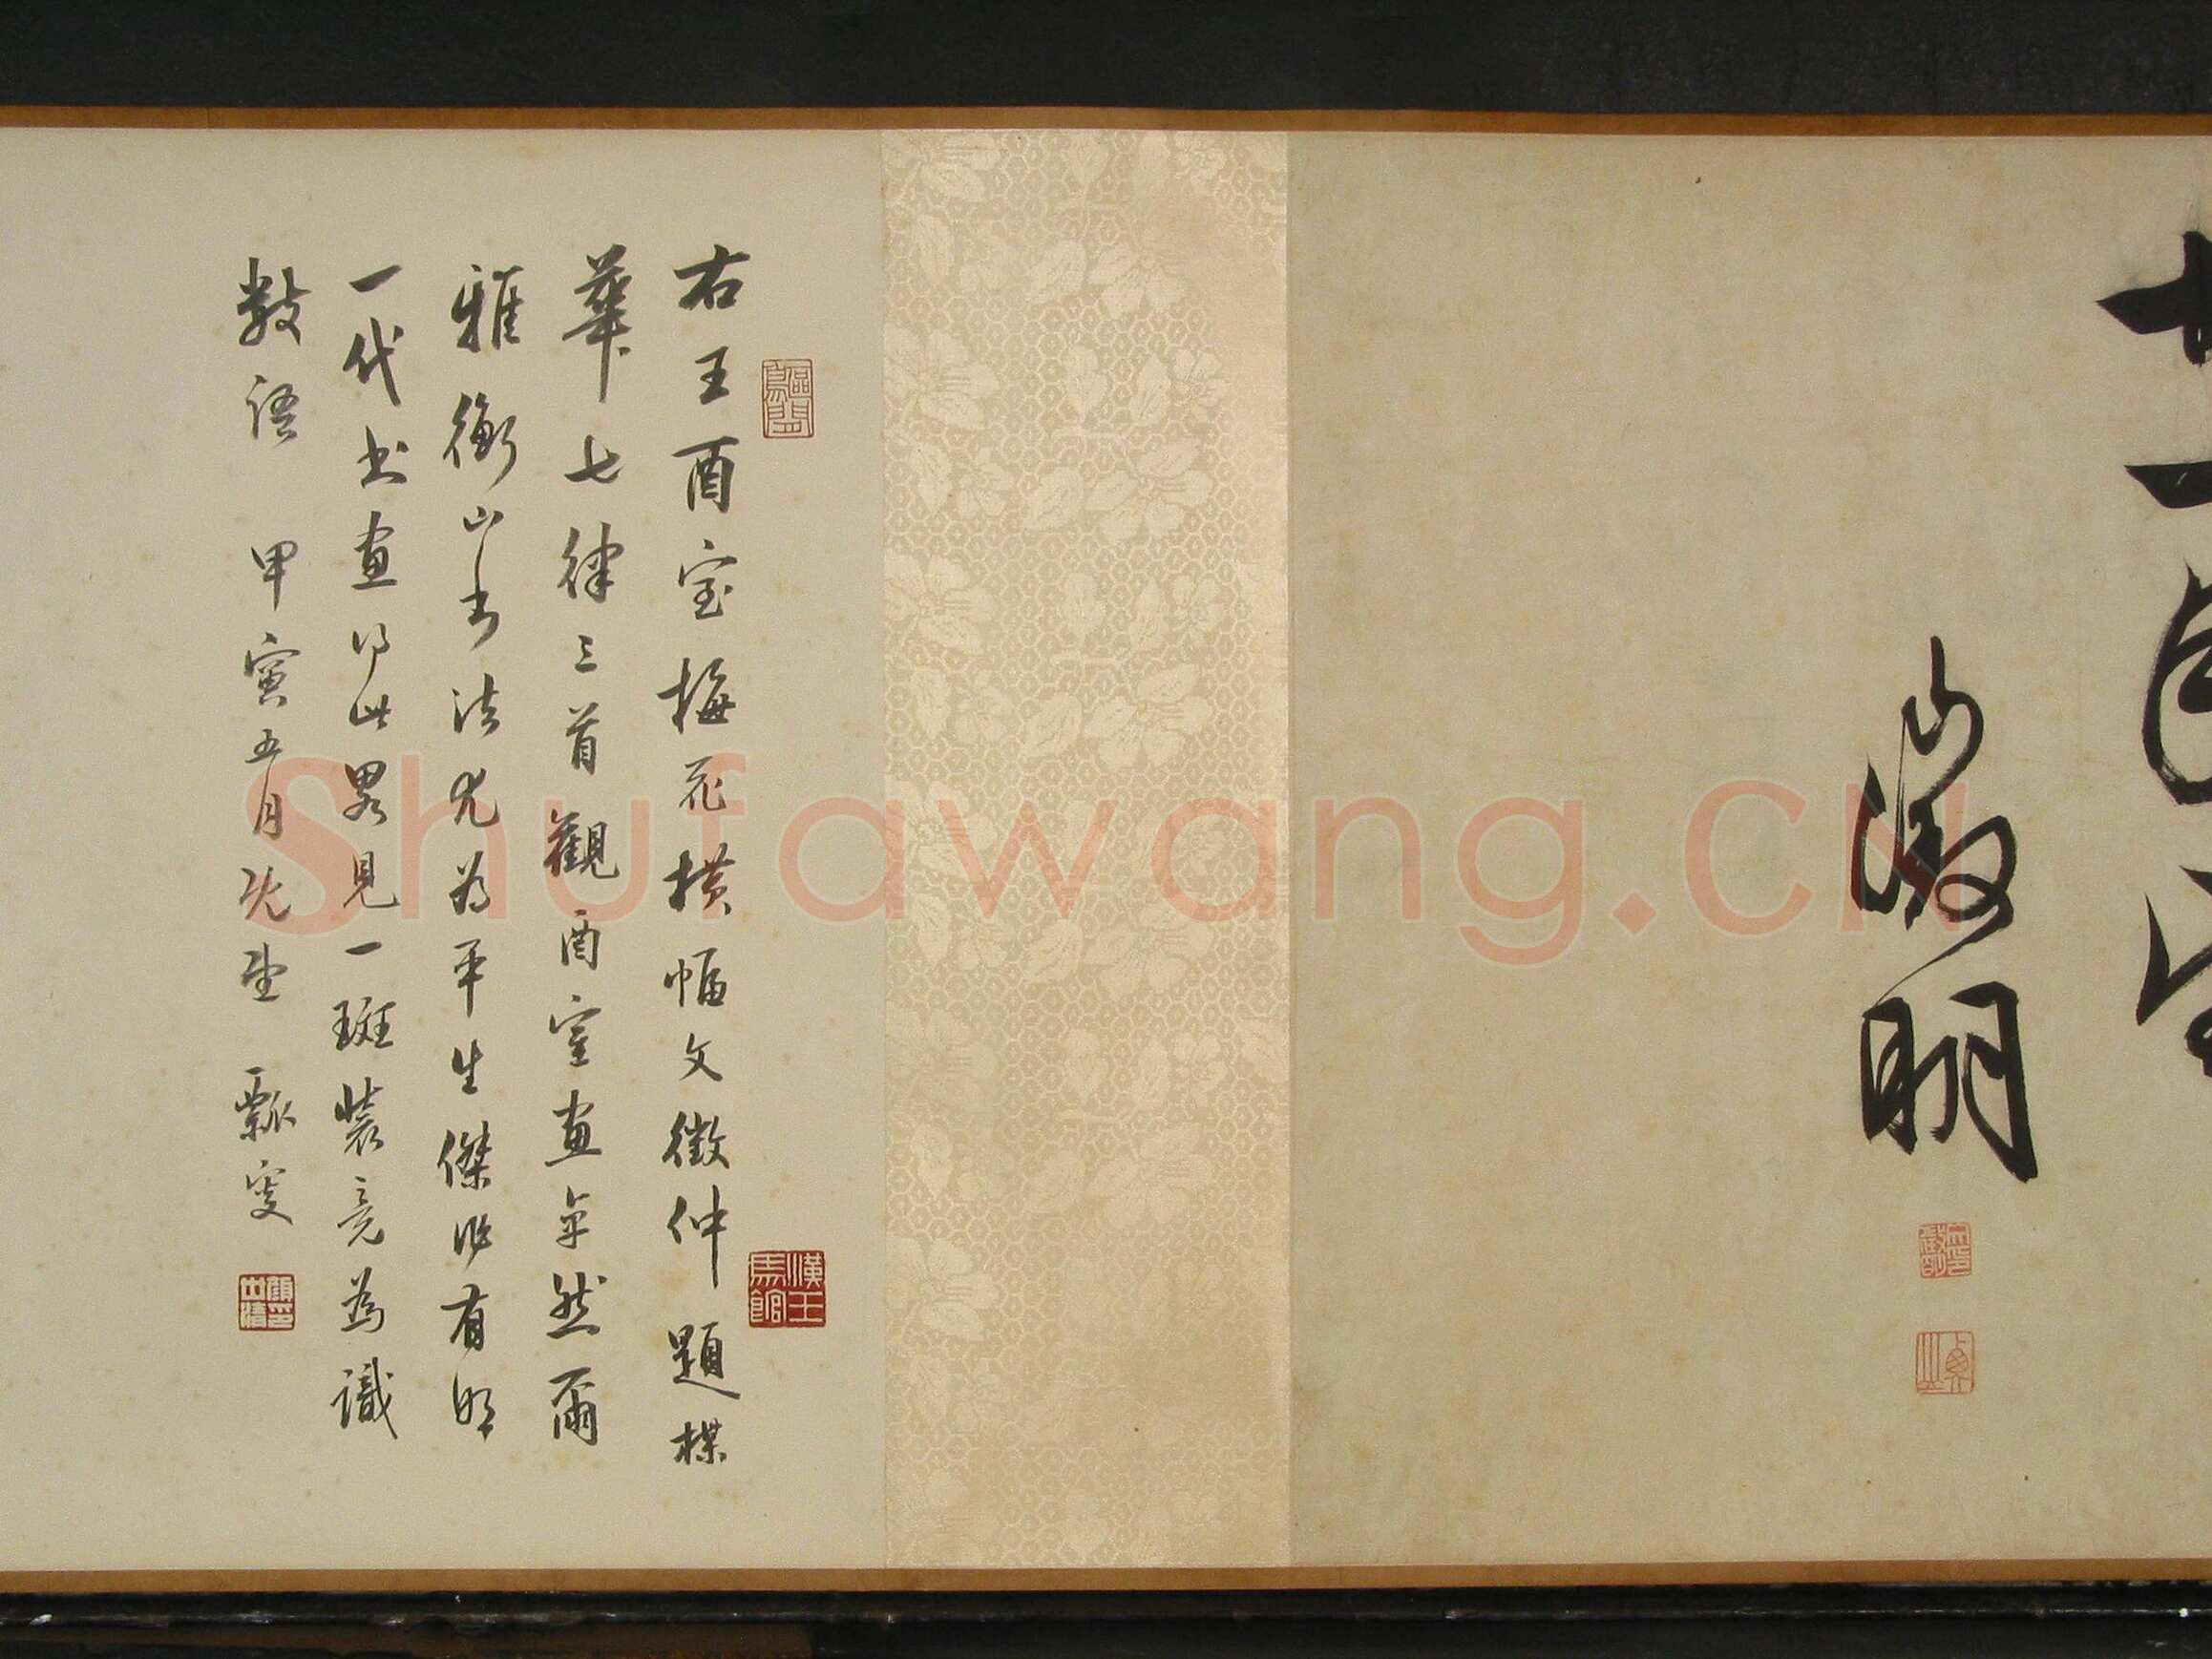 十一月望
徵明
右王酉室梅花横幅文徵仲題楳
華七律三首觀酉室畫平然爾
雅衡山書法尤為平生傑作有明
一代書畫得此畧見一斑裝竟為識
數語 甲寅五月既望 瓢叟
漢王
馬館
Shufawang.CN